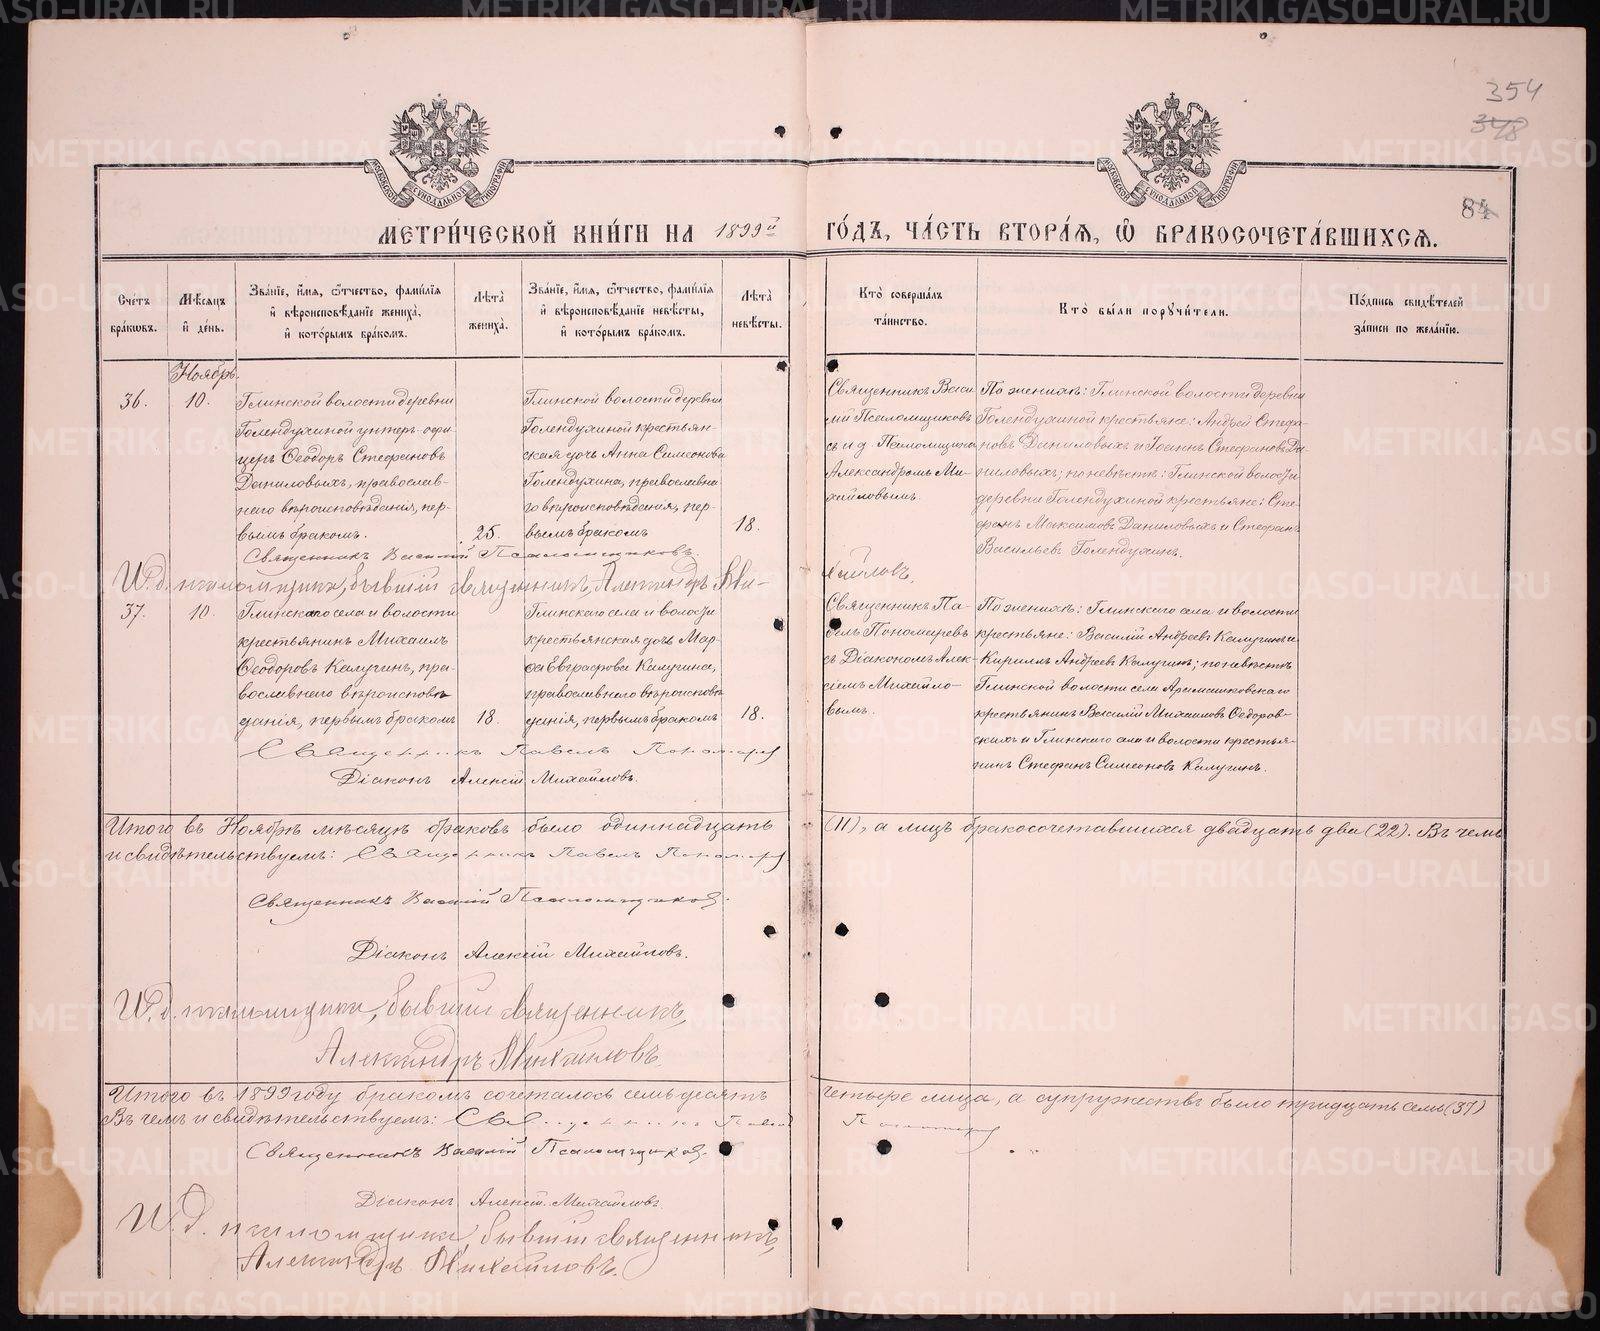 354
348
84
МОСКОВСКОЙ СУНОДАЛЬНОЙ ТИПОГРАФІИ
МОСКОВСКОЙ СУНОДАЛЬНОЙ ТИПОГРАФІИ
МЕТРИ́ЧЕСКОЙ КНИ́ГИ НА 1899й ГО́ДЪ, ЧА́СТЬ ВТОРА́Я, Ѡ БРАКОСОЧЕТА́ВШИХСЯ.
Сче́тъ бра́кѡвъ.
Мѣ́сяцъ и҆ де́нь.
Зва́нїе, и҆́мя, ѻ҆́тчество, фамилїя и҆ вѣроисповѣ́данїе жениха̀, и҆ кото́рымъ бра́комъ.
Лѣ́та жениха̀.
Зва́нїе, и҆́мя, ѻ҆́тчество, фами́лїя и҆ вѣроисповѣ́данїе невѣ́сты, и҆ кото́рымъ бра́комъ.
Лѣ́та невѣ́сты.
Кто̀ соверша́лъ та́инство.
Кто̀ бы́ли порꙋчи́тели.
По́дпись свидѣ́телей за́писи по жела́нїю.
Ноябрь.
36.
10.
Глинской волости деревни
Голендухиной унтеръ-офи-
церъ Ѳеодоръ Стефановъ
Даниловыхъ, православ-
наго вѣроисповѣданія, пер-
вымъ бракомъ.
25.
Глинской волости деревни
Голендухиной крестьян-
ская дочь Анна Симеонова
Голендухина, православна
го вѣроисповѣданія, пер-
вымъ бракомъ
18.
Священникъ Васи
лій Псаломщиковъ
съ и д. Псаломщика
Александромъ Ми-
хайловымъ.
По женихѣ: Глинской волости деревни
Голендухиной крестьяне: Андрей Стефа-
новъ Даниловыхъ и Іоаннъ Стефановъ Да-
ниловыхъ; по невѣстѣ: Глинской волости
деревни Голендухиной крестьяне: Сте-
фанъ Максимовъ Даниловыхъ и Стефанъ
Васильевъ Голендухинъ.
Священникъ Василій Псаломщиковъ.
И. д. псаломщика, бывшій священникъ, Александръ Ми-
хайловъ.
37.
10.
Глинскаго села и волости
крестьянинъ Михаилъ
Ѳеодоровъ Калугинъ, пра-
вославнаго вѣроисповѣ
данія, первымъ бракомъ
18.
Глинскаго села и волости
крестьянская дочь Мар-
ѳа Евграфова Калугина,
православнаго вѣроисповѣ
данія, первымъ бракомъ
18.
Священникъ Па-
велъ Пономаревъ
съ Діакономъ Алек-
сіемъ Михайло-
вымъ.
По женихѣ: Глинскаго села и волости
крестьяне: Василій Андреевъ Калугинъ и
Кириллъ Андреевъ Калугинъ; по невѣстѣ
Глинской волости села Арамашковскаго
крестьянинъ Василій Михаиловъ Ѳедоров-
скихъ и Глинскаго села и волости крестья-
нинъ Стефанъ Симеоновъ Калугинъ.
Священникъ Павелъ Пономаревъ
Діаконъ Алексій Михайловъ.
Итого въ Ноябрѣ мѣсяцѣ браковъ было одиннадцать (11), а лицъ бракосочетавшихся двадцать два (22). Въ чемъ
и свидѣтельствуемъ: Священникъ Павелъ Пономаревъ
Священникъ Василій Псаломщиковъ.
Діаконъ Алексій Михайловъ.
И. д. псаломщика, бывшій священникъ,
Александръ Михайловъ.
Итого въ 1899 году бракомъ сочеталось семьдесятъ четыре лица, а супружествъ было тридцать семь (37)
Въ чемъ и свидѣтельствуемъ: Священникъ Павелъ Пономаревъ
Священникъ Василій Псаломщиковъ.
Діаконъ Алексій Михайловъ
И. д. псаломщика, бывшій священникъ,
Александръ Михайловъ.
METRIKI.GASO-URAL.RU